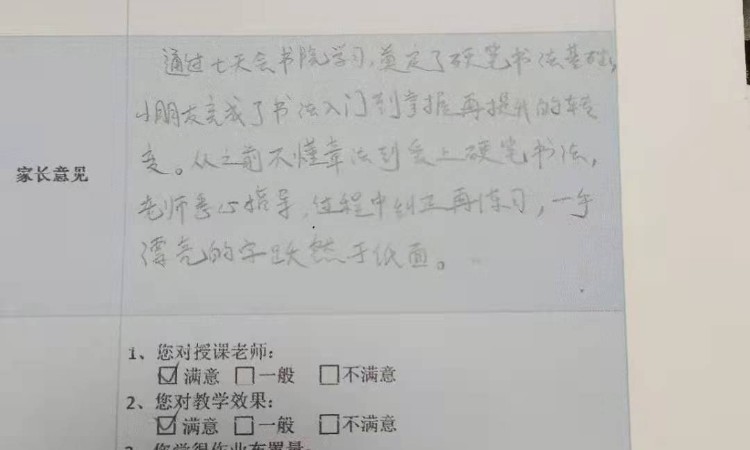 通过七天会书院学习,奠定了硬笔书法基础,
小朋友完成了书法入门到掌握再提升的转
变。从之前不懂章法到爱上硬笔书法,
家长意见
老师悉心指导,过程中纠正再练习,一手
漂亮的字跃然于纸面。
1、您对授课老师:
☑满意 □一般 □不满意
2、您对教学效果:
☑满意 □一般 □不满意
您觉得作业布置量: